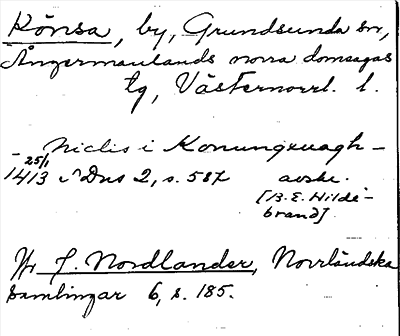 Könsa, by, Grundsunda sn,
Ångermanlands norra domsagas
tg, Västernorrl. l.
- Niclis i Konungxuagh -
25/1 1413 SDns 2, s. 587 avskr.
[B. E. Hilde-
brand].
Hr J. Nordlander, Norrländska
Samlingar 6, s. 185.